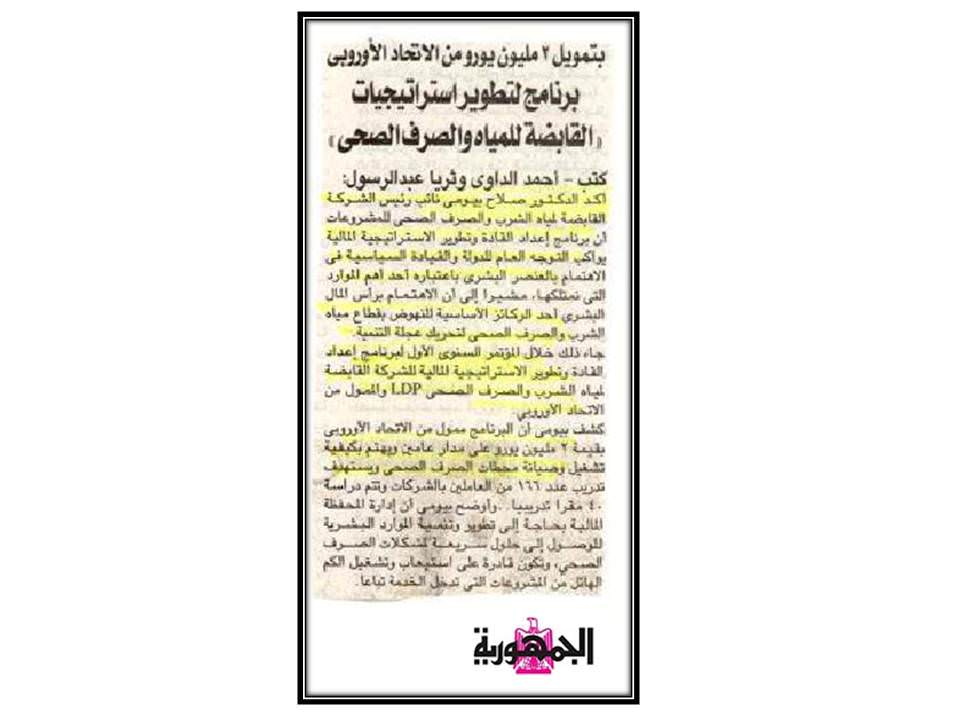 بتمويل ٢ مليون يورو من الاتحاد الأوروبى
برنامج لتطوير استراتيجيات
«القابضة للمياه والصرف الصحى»
كتب - أحمد الداوى وثريا عبدالرسول:
أكد الدكتور صلاح بيومى نائب رئيس الشركة
القابضة لمياه الشرب والصرف الصحى للمشروعات
أن برنامج إعداد القادة وتطوير الاستراتيجية المالية
يواكب التوجه العام للدولة والقيادة السياسية فى
الاهتمام بالعنصر البشرى باعتباره أحد أهم الموارد
التى نمتلكها، مشيرا إلى أن الاهتمام برأس المال
البشرى أحد الركائز الأساسية للنهوض بقطاع مياه
الشرب والصرف الصحى لتحريك عجلة التنمية.
جاء ذلك خلال المؤتمر السنوى الأول لبرنامج إعداد
القادة وتطوير الاستراتيجية المالية للشركة القابضة
لمياه الشرب والصرف الصحى LDP والممول من
الاتحاد الأوروبي.
كشف بيومى أن البرنامج ممول من الاتحاد الأوروبى
بقيمة ٢ مليون يورو على مدار عامين ويهتم بكيفية
تشغيل وصيانة محطات الصرف الصحى ويستهدف
تدريب عدد ١٦٦ من العاملين بالشركات وتتم دراسة
٤٠ مقرا تدريبيا.. وأوضح بيومى أن إدارة المحفظة
المالية بحاجة إلى تطوير وتنمية الموارد البشرية
للوصول إلى حلول سريعة لمشكلات الصرف
الصحى، وتكون قادرة على استيعاب وتشغيل الكم
الهائل من المشروعات التى تدخل الخدمة تباعا.
الجمهورية